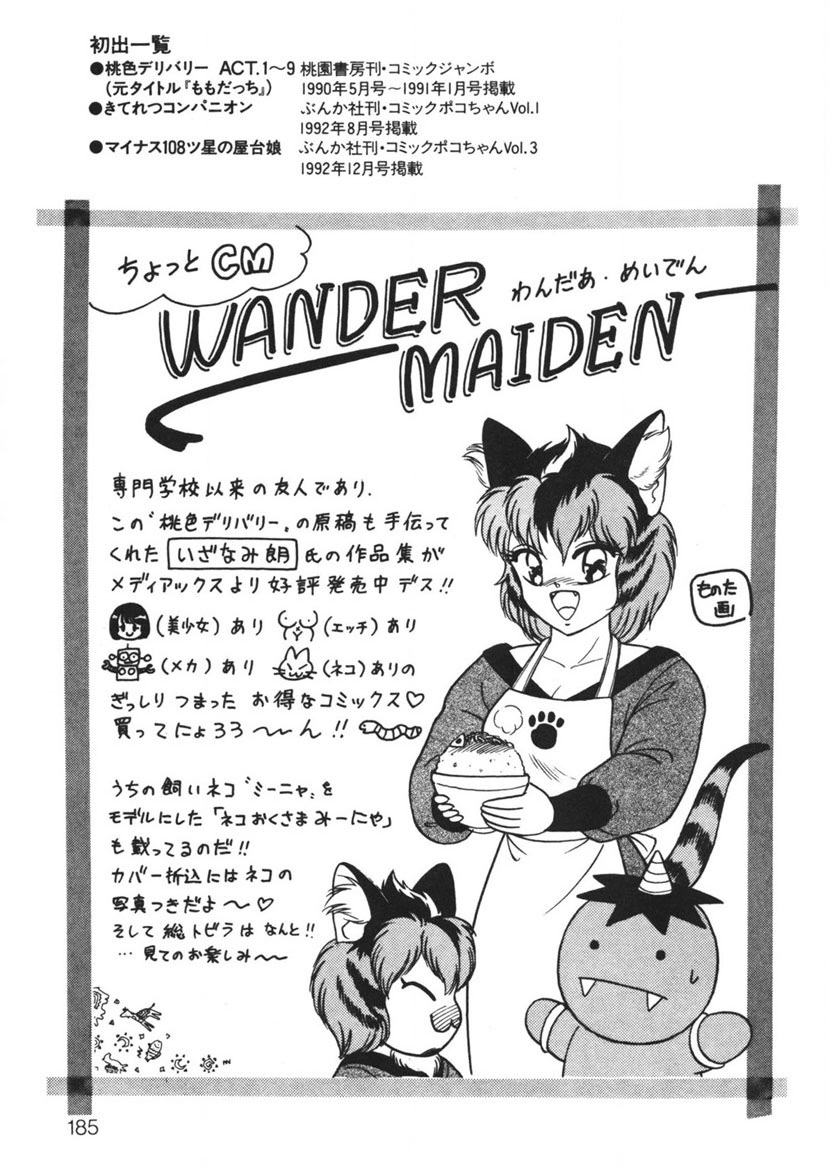 初出一覧
●桃色デリバリー ACT.1〜9 桃園書房刊・コミックジャンボ
(元タイトル『ももだっち』) 1990年5月号〜1991年1月号掲載
●きてれつコンパニオン ぶんか社刊・コミックポコちゃんVol.1
1992年8月号掲載
●マイナス108ツ星の屋台娘 ぶんか社刊・コミックポコちゃんVol.3
1992年12月号掲載
ちょっと CM
WANDER
わんだあ・めいでん
MAIDEN
専門学校以来の友人であり、
この“桃色デリバリー”の原稿も手伝って
くれた いざなみ朗 氏の作品集が
メディアックスより好評発売中デス!!
(美少女)あり (エッチ)あり
(メカ)あり (ネコ)ありの
ぎっしりつまった お得なコミックス♡
買ってにょろろ〜〜ん!!
ものた
画
うちの飼いネコ“ミーニャ”を
モデルにした「ネコおくさまみーにゃ」
も載ってるのだ!!
カバー折込にはネコの
写真つきだよ〜♡
そして総トビラは なんと!!
…見てのお楽しみ〜〜
185